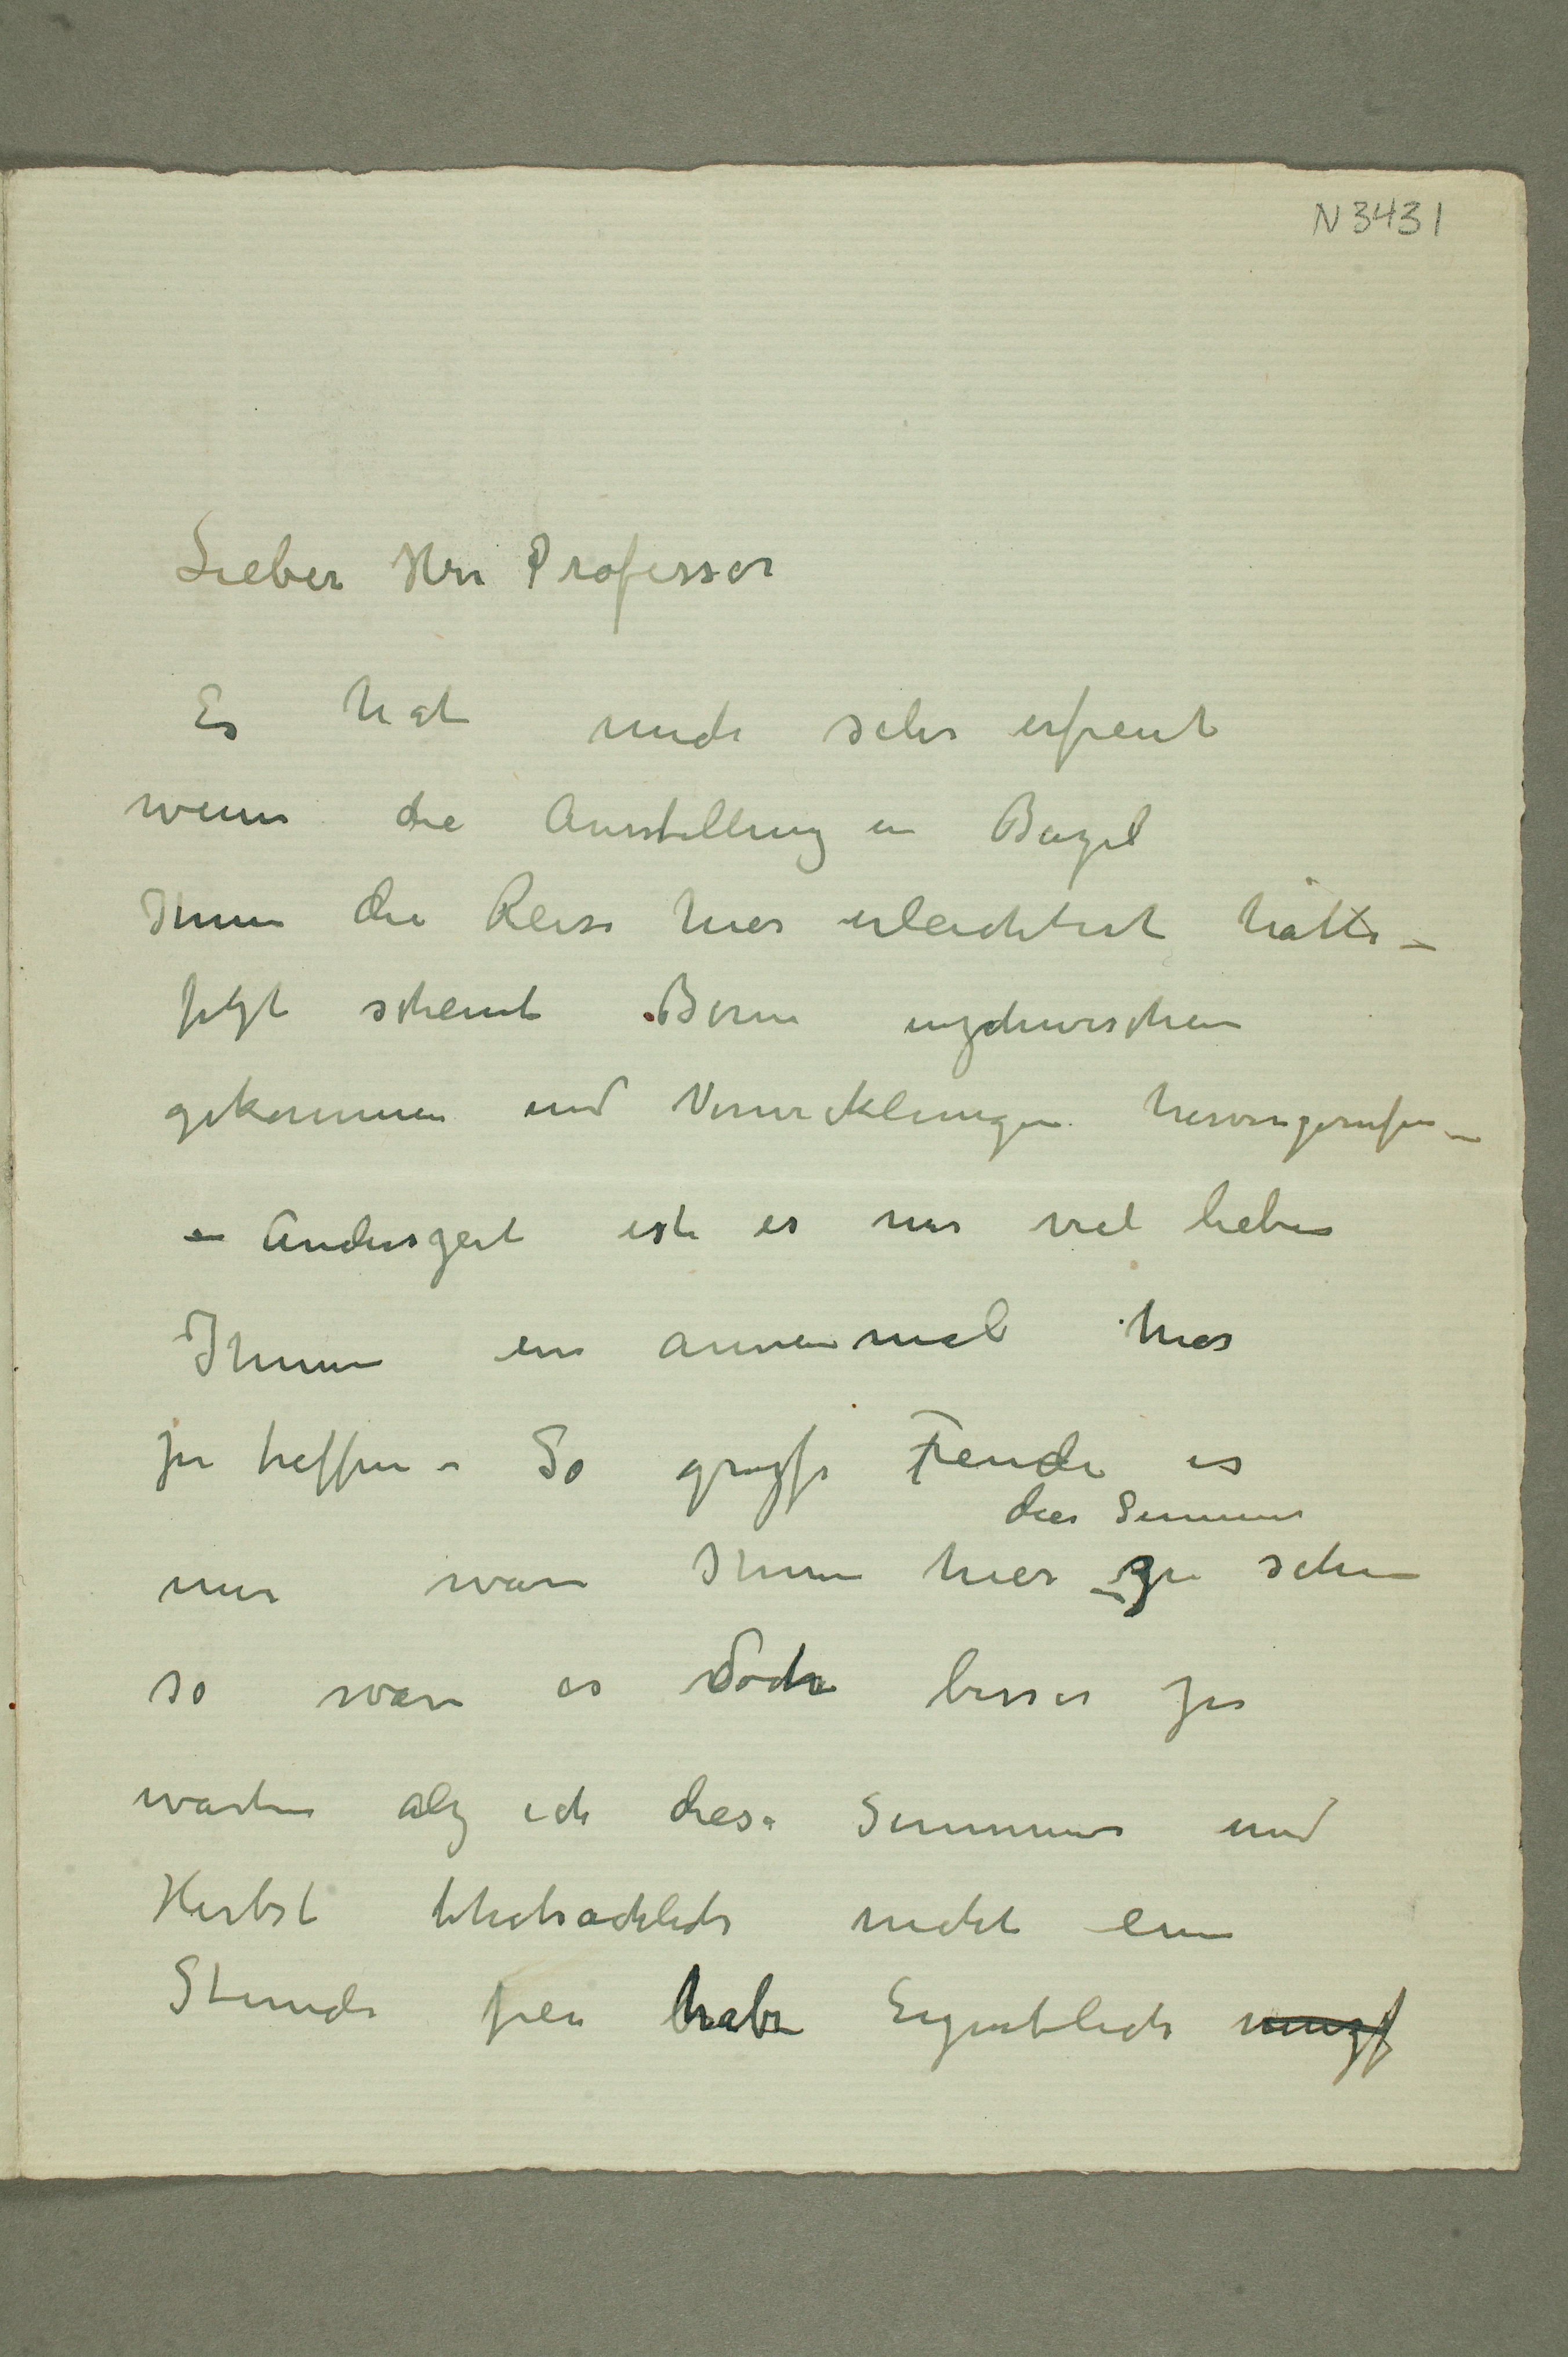 N 3431
Lieber Herr Professor
Es hat mich sehr erfreut
wenn die Ausstellung in Bazel
Ihnen die Reise hier erleichtert hätte –
jetzt scheint Bern inzchwischen
gekommen und Verwicklungen hervorgerufen –
– Anderszeit ist es mir viel lieber
Ihnen ein anderen mal hier
zu treffen – So grosse Freude es
dies Sommer
mir wäre Ihnen hier zu sehen
so wäre es doch besser zu
warten alz ich diese Sommer und
Herbst thatsächlich nicht eine
Stunde frei habe Eigentlich muzs